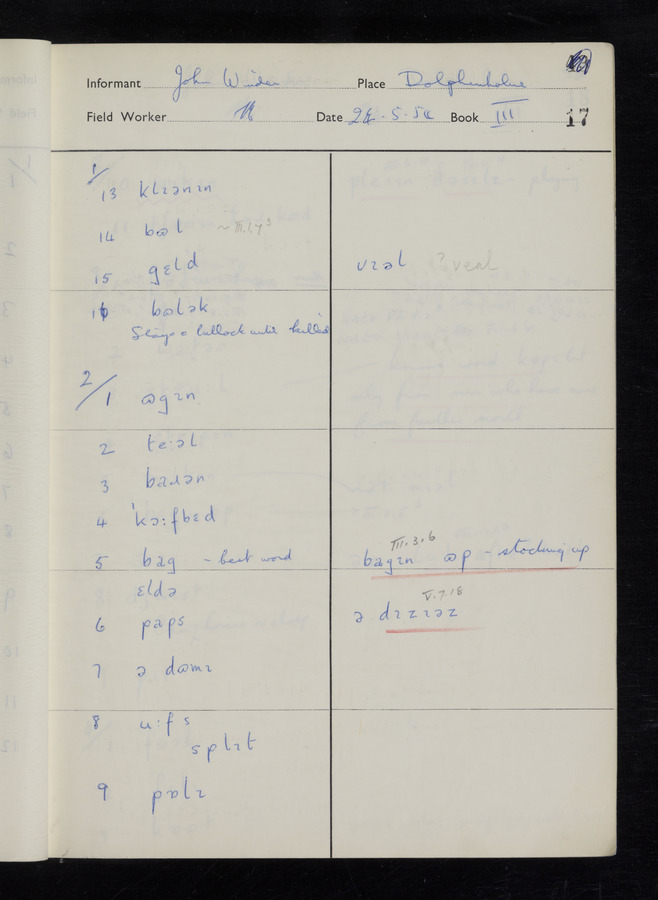 Informant John Winder Place Dolphinholme
Field Worker Date 24.5.54 Book III 17
1/
13 klɪənɪn
14 bɷl ~ III.1.4
15 gɛld vɪəl ? veal
16 bɷlək
Stays a bullock until killed
2/1 ɷgɪn
2 te·əl
3 baɹən
4 'kɔ:fbɛd
5 bag - best word bagɪn ɷp - stocking up
III.3.6
ɛldə
6 paps ə dɪzɪəz
V.7.18
7 ə dɷmɪ
8 u:fs
splɪt
9 pɒlɪ